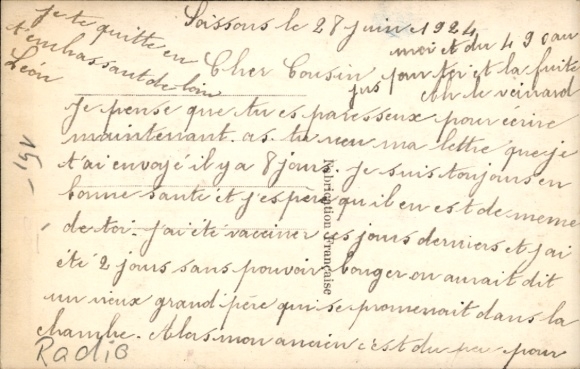 Soissons le 28 juin 1924
Cher Cousin
Je pense que tu es paresseux pour écrire
maintenant. as tu reçu ma lettre que je
t'ai envoyé il y a 8 jours. Je suis toujours en
bonne santé et j'espère qu'il en est de meme
de toi. J'ai été vacciner ces jours derniers et j'ai
été 2 jours sans pouvoir bouger on aurait dit
un vieux grand père qui se promenait dans la
chambre. Alas mon ancien c'est du peu pour
moi et du 490 au
jus pour toi et la fuite
Ah le veinard
Je te quitte en
t'embrassant de loin
Léon
Fabrication Française
151
Radio